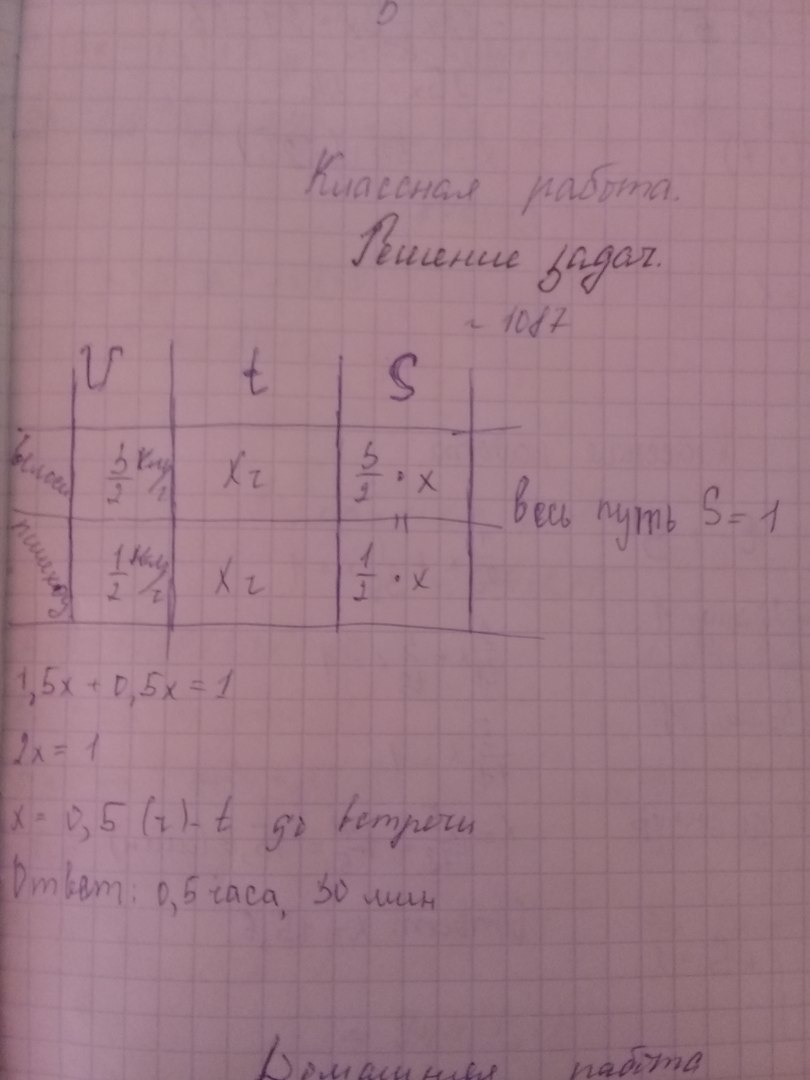 Классная работа.
Решение задач.
~ 1087
V t S
велос. 3/2 км/ч x ч 3/2 · x
весь путь S = 1
пешеход 1/2 км/ч x ч 1/2 · x
1,5x + 0,5x = 1
2x = 1
x = 0,5 (ч) - t до встречи
Ответ: 0,5 часа, 30 мин
Домашняя работа